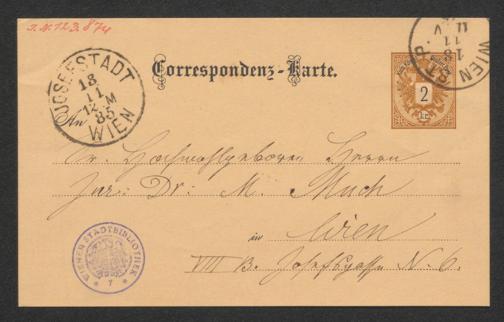 J.N. 123.874
JOSEFSTADT
18
11
12.M
85
WIEN
Correspondenz-Karte.
WIEN
18
11
2
kr.
Sr. Hochwohlgeboren Herrn
Jur: Dr: M. Much
in Wien
VIII B. Josefsgasse N. 6.
WIENER STADTBIBLIOTHEK
* 7 *